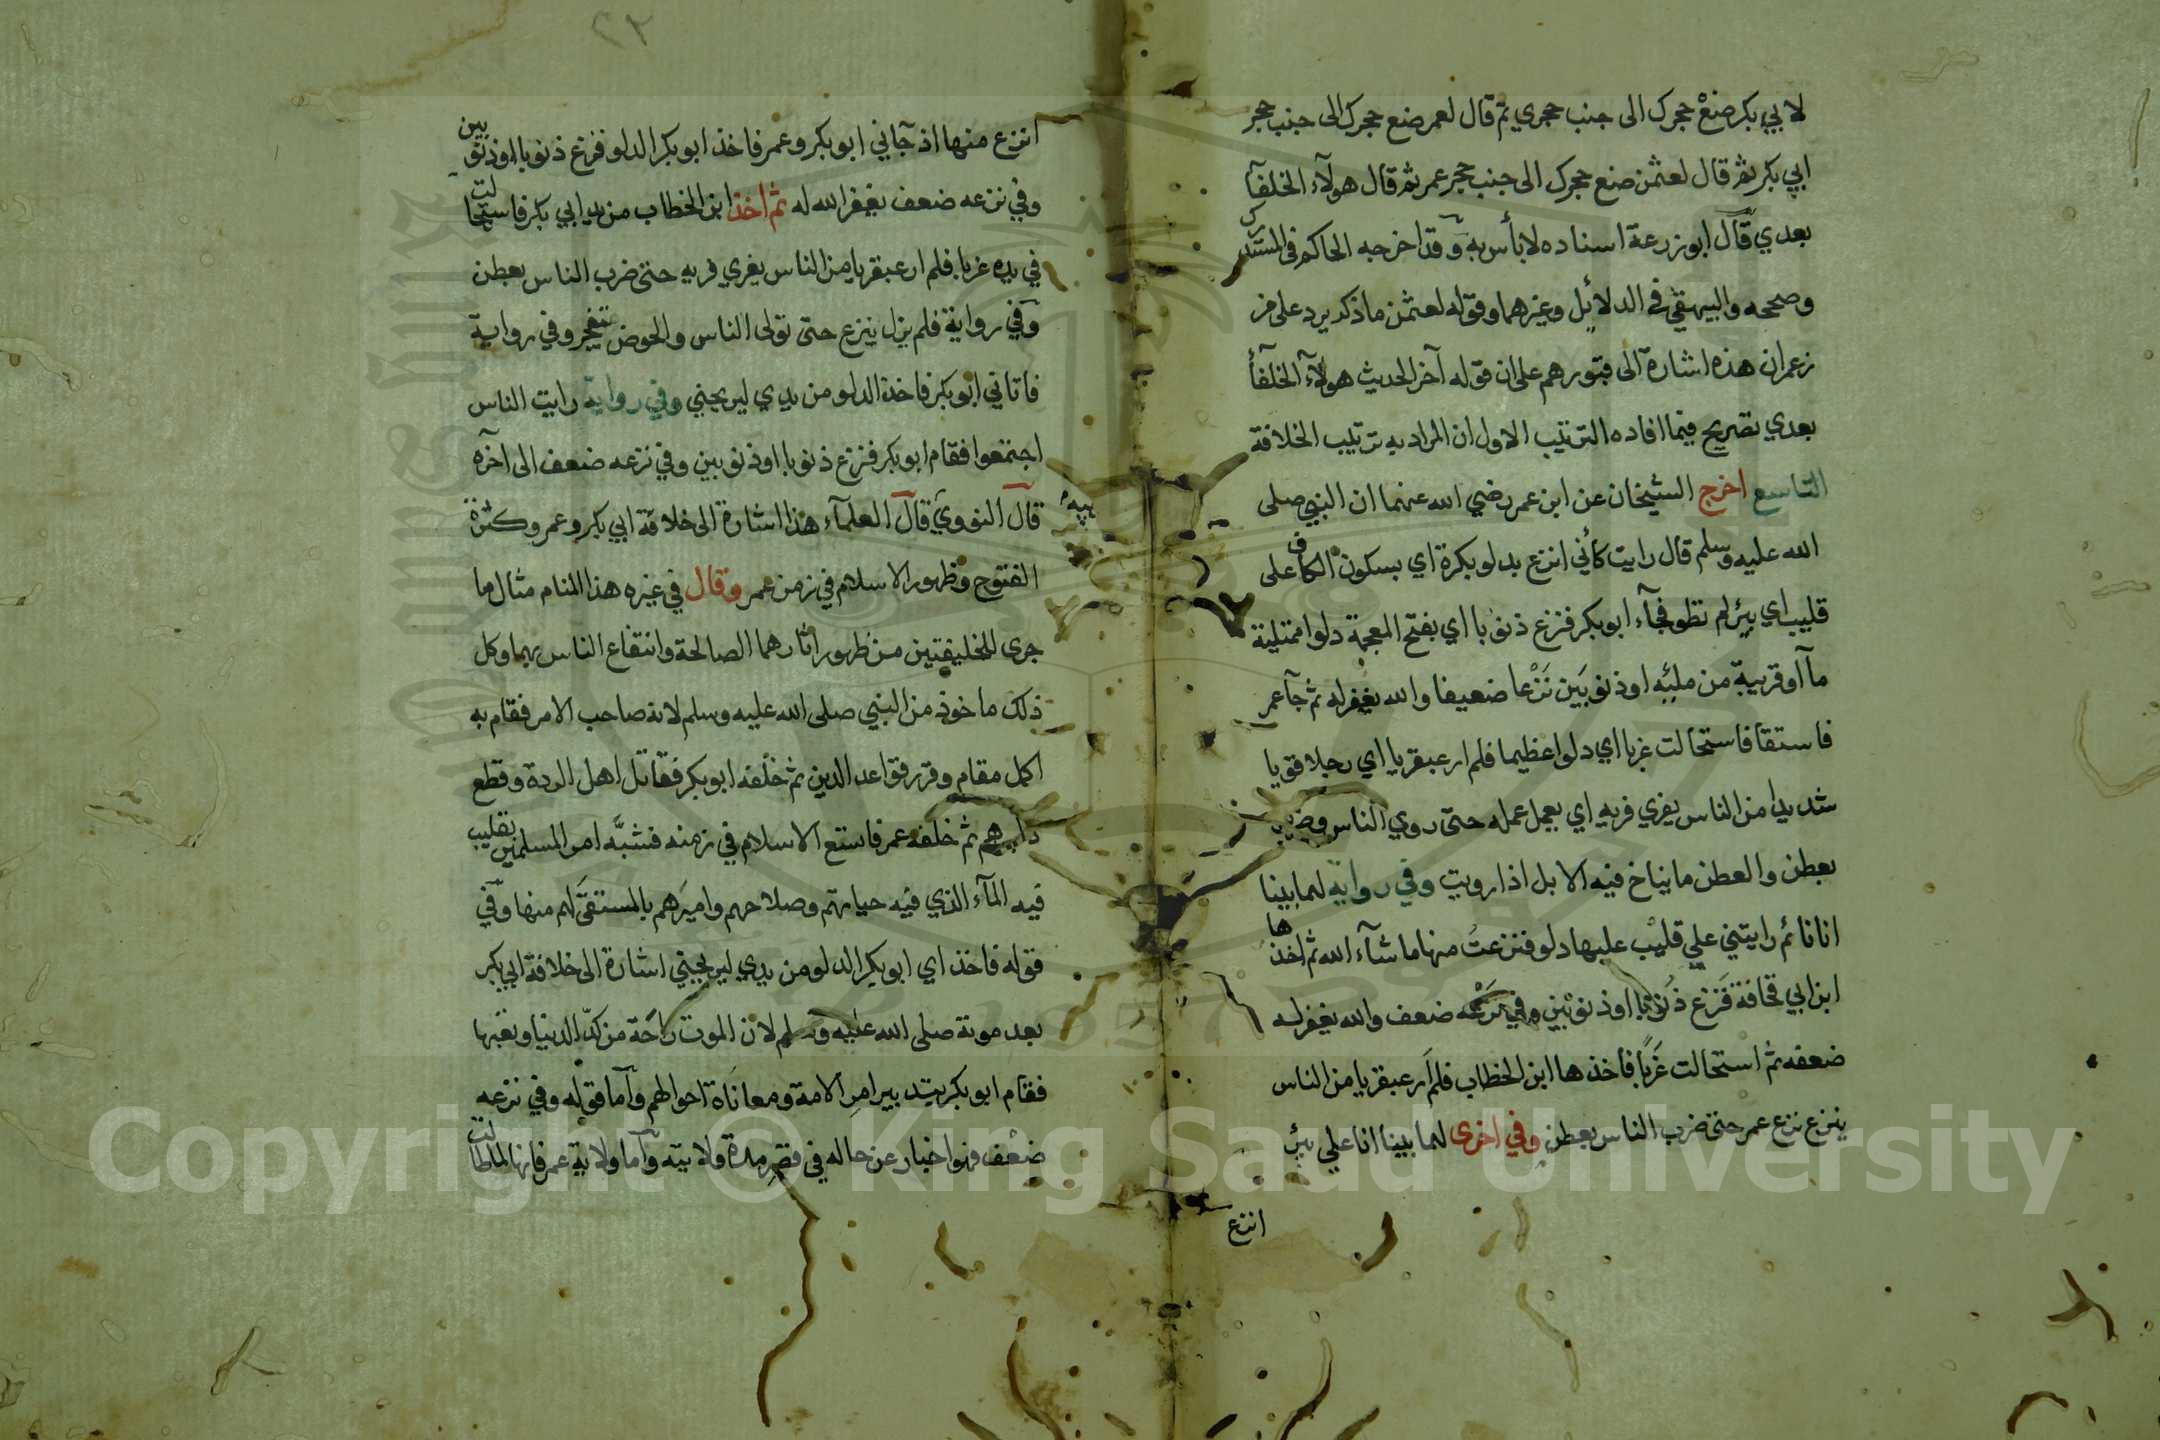 لابي بكر ضع حجرك الى جنب حجري ثم قال لعمر ضع حجرك الى جنب حجر
ابي بكر ثم قال لعثمن ضع حجرك الى جنب حجر عمر ثم قال هولآء الخلفآ
بعدي قال ابو زرعة اسناده لا بأس به وقد اخرجه الحاكم في المستدرك
وصححه والبيهقي في الدلائل وغيرهما وقوله لعثمن ما ذكر يرد على من
زعم ان هذه اشارة الى قبورهم على ان قوله آخر الحديث هولآء الخلفآ
بعدي تصريح فيما افاده الترتيب الاول ان المراد به ترتيب الخلافة
التاسع اخرج الشيخان عن ابن عمر رضي الله عنهما ان النبي صلى
الله عليه وسلم قال رايت كأني انزع بدلو بكرة اي بسكون الكاف على
قليب اي بئر لم تطو فجآء ابو بكر فنزع ذنوبا اي بفتح المعجمة دلوا ممتلية
مآ او قريبة من مليه او ذنوبين نزعا ضعيفا والله يغفر له ثم جآ عمر
فاستقا فاستحالت غربا اي دلوا عظيما فلم ار عبقريا اي رجلا قويا
شديدا من الناس يفري فريه اي يعمل عمله حتى روي الناس وضرب
بعطن والعطن ما يناخ فيه الابل اذا رويت وفي رواية لهما بينا
انا نائم رايتني علي قليب عليها دلو فنزعت منها ما شآء الله ثم اخذها
ابن ابي قحافة فنزع ذنوبا او ذنوبين وفي نزعه ضعف والله يغفر له
ضعفه ثم استحالت غربا فاخذها ابن الخطاب فلم ار عبقريا من الناس
ينزع نزع عمر حتى ضرب الناس بعطن وفي اخرى لهما بينا انا علي بئر
انزع
٢٣
انزع منها اذ جآني ابو بكر وعمر فاخذ ابو بكر الدلو فنزع ذنوبا او ذنوبين
وفي نزعه ضعف يغفر الله له ثم اخذ ابن الخطاب من يد ابي بكر فاستحالت
في يده غربا فلم ار عبقريا من الناس يفري فريه حتى ضرب الناس بعطن
وفي رواية فلم يزل ينزع حتى تولى الناس والحوض يتفجر وفي رواية
فاتاني ابو بكر فاخذ الدلو من يدي ليريحني وفي رواية رايت الناس
اجتمعوا فقام ابو بكر فنزع ذنوبا او ذنوبين وفي نزعه ضعف الى آخره
قال النووي قال العلمآء هذا اشارة الى خلافة ابي بكر وعمر وكثرة
الفتوح وظهور الاسلام في زمن عمر وقال في غيره هذا المنام مثال ما
جرى للخليفتين من ظهور اثارهما الصالحة وانتفاع الناس بهما وكل
ذلك ماخوذ من النبي صلى الله عليه وسلم لانه صاحب الامر فقام به
اكمل مقام وقرر قواعد الدين ثم خلفه ابو بكر فقاتل اهل الردة وقطع
دابرهم ثم خلفه عمر فاتسع الاسلام في زمنه فشبّه امر المسلمين بقليب
فيه المآء الذي فيه حياتهم وصلاحهم واميرهم بالمستقى لهم منها وفي
قوله فاخذ اي ابو بكر الدلو من يدي ليريحني اشارة الى خلافة ابي بكر
بعد موته صلى الله عليه وسلم لان الموت راحة من كدّ الدنيا وتعبها
فقام ابو بكر بتدبير امر الامة ومعاناة احوالهم وآما قوله وفي نزعه
ضعف فهو اخبار عن حاله في قصر مدة ولايته وآما ولاية عمر فانها لما طالت
Copyright © King Saud University
King Saud University
1957